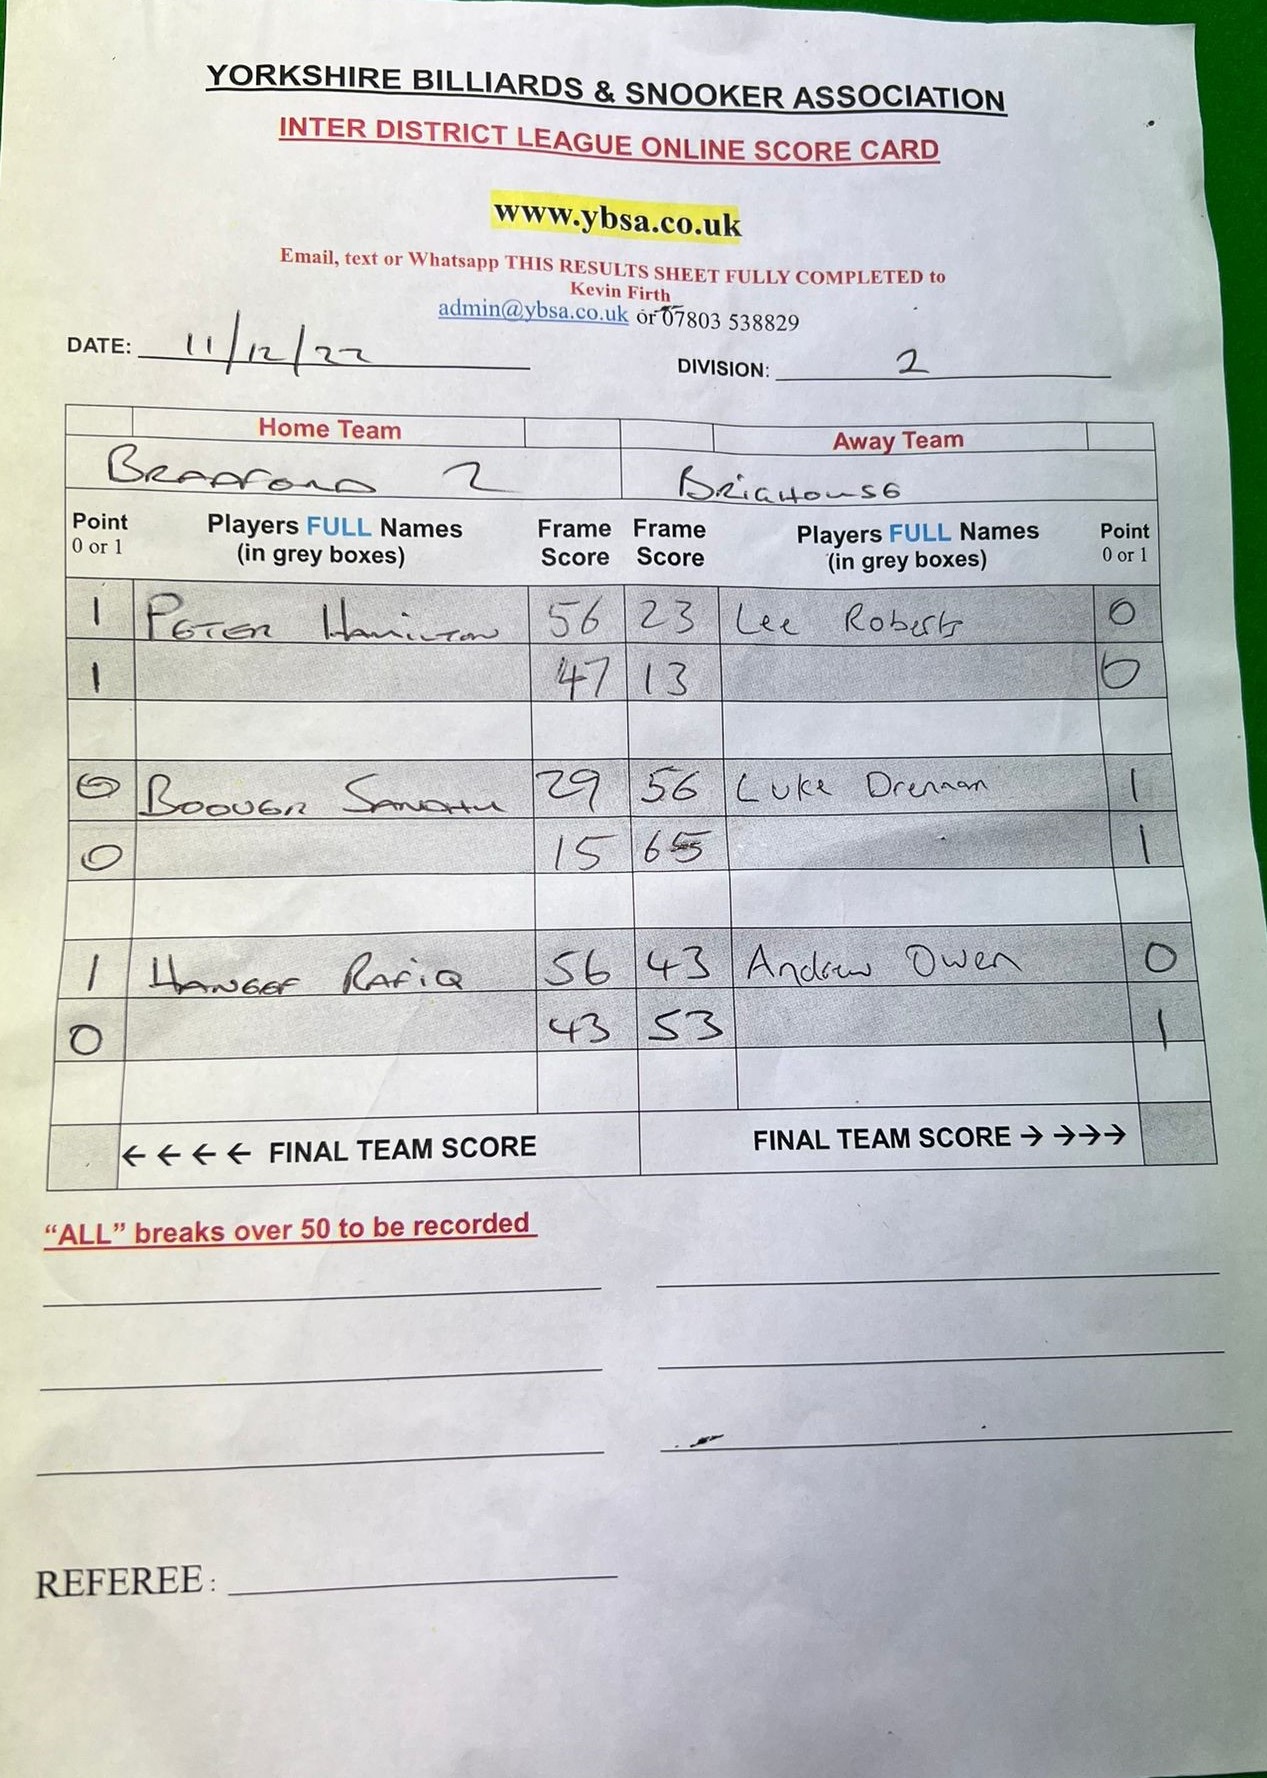 YORKSHIRE BILLIARDS & SNOOKER ASSOCIATION
INTER DISTRICT LEAGUE ONLINE SCORE CARD
www.ybsa.co.uk
Email, text or Whatsapp THIS RESULTS SHEET FULLY COMPLETED to
Kevin Firth
admin@ybsa.co.uk or 07803 538829
DATE: 11/12/22 DIVISION: 2
Home Team Away Team
BRADFORD 2 BRIGHOUSE
Point Players FULL Names Frame Frame Players FULL Names Point
0 or 1 (in grey boxes) Score Score (in grey boxes) 0 or 1
1 PETER HAMILTON 56 23 Lee Roberts 0
1 47 13 0
0 SANDHU 29 56 Luke Drennan 1
0 15 65 1
1 HANEEF RAFIQ 56 43 Andrew Owen 0
0 43 53 1
← ← ← ← FINAL TEAM SCORE FINAL TEAM SCORE → →→→
“ALL” breaks over 50 to be recorded
REFEREE: